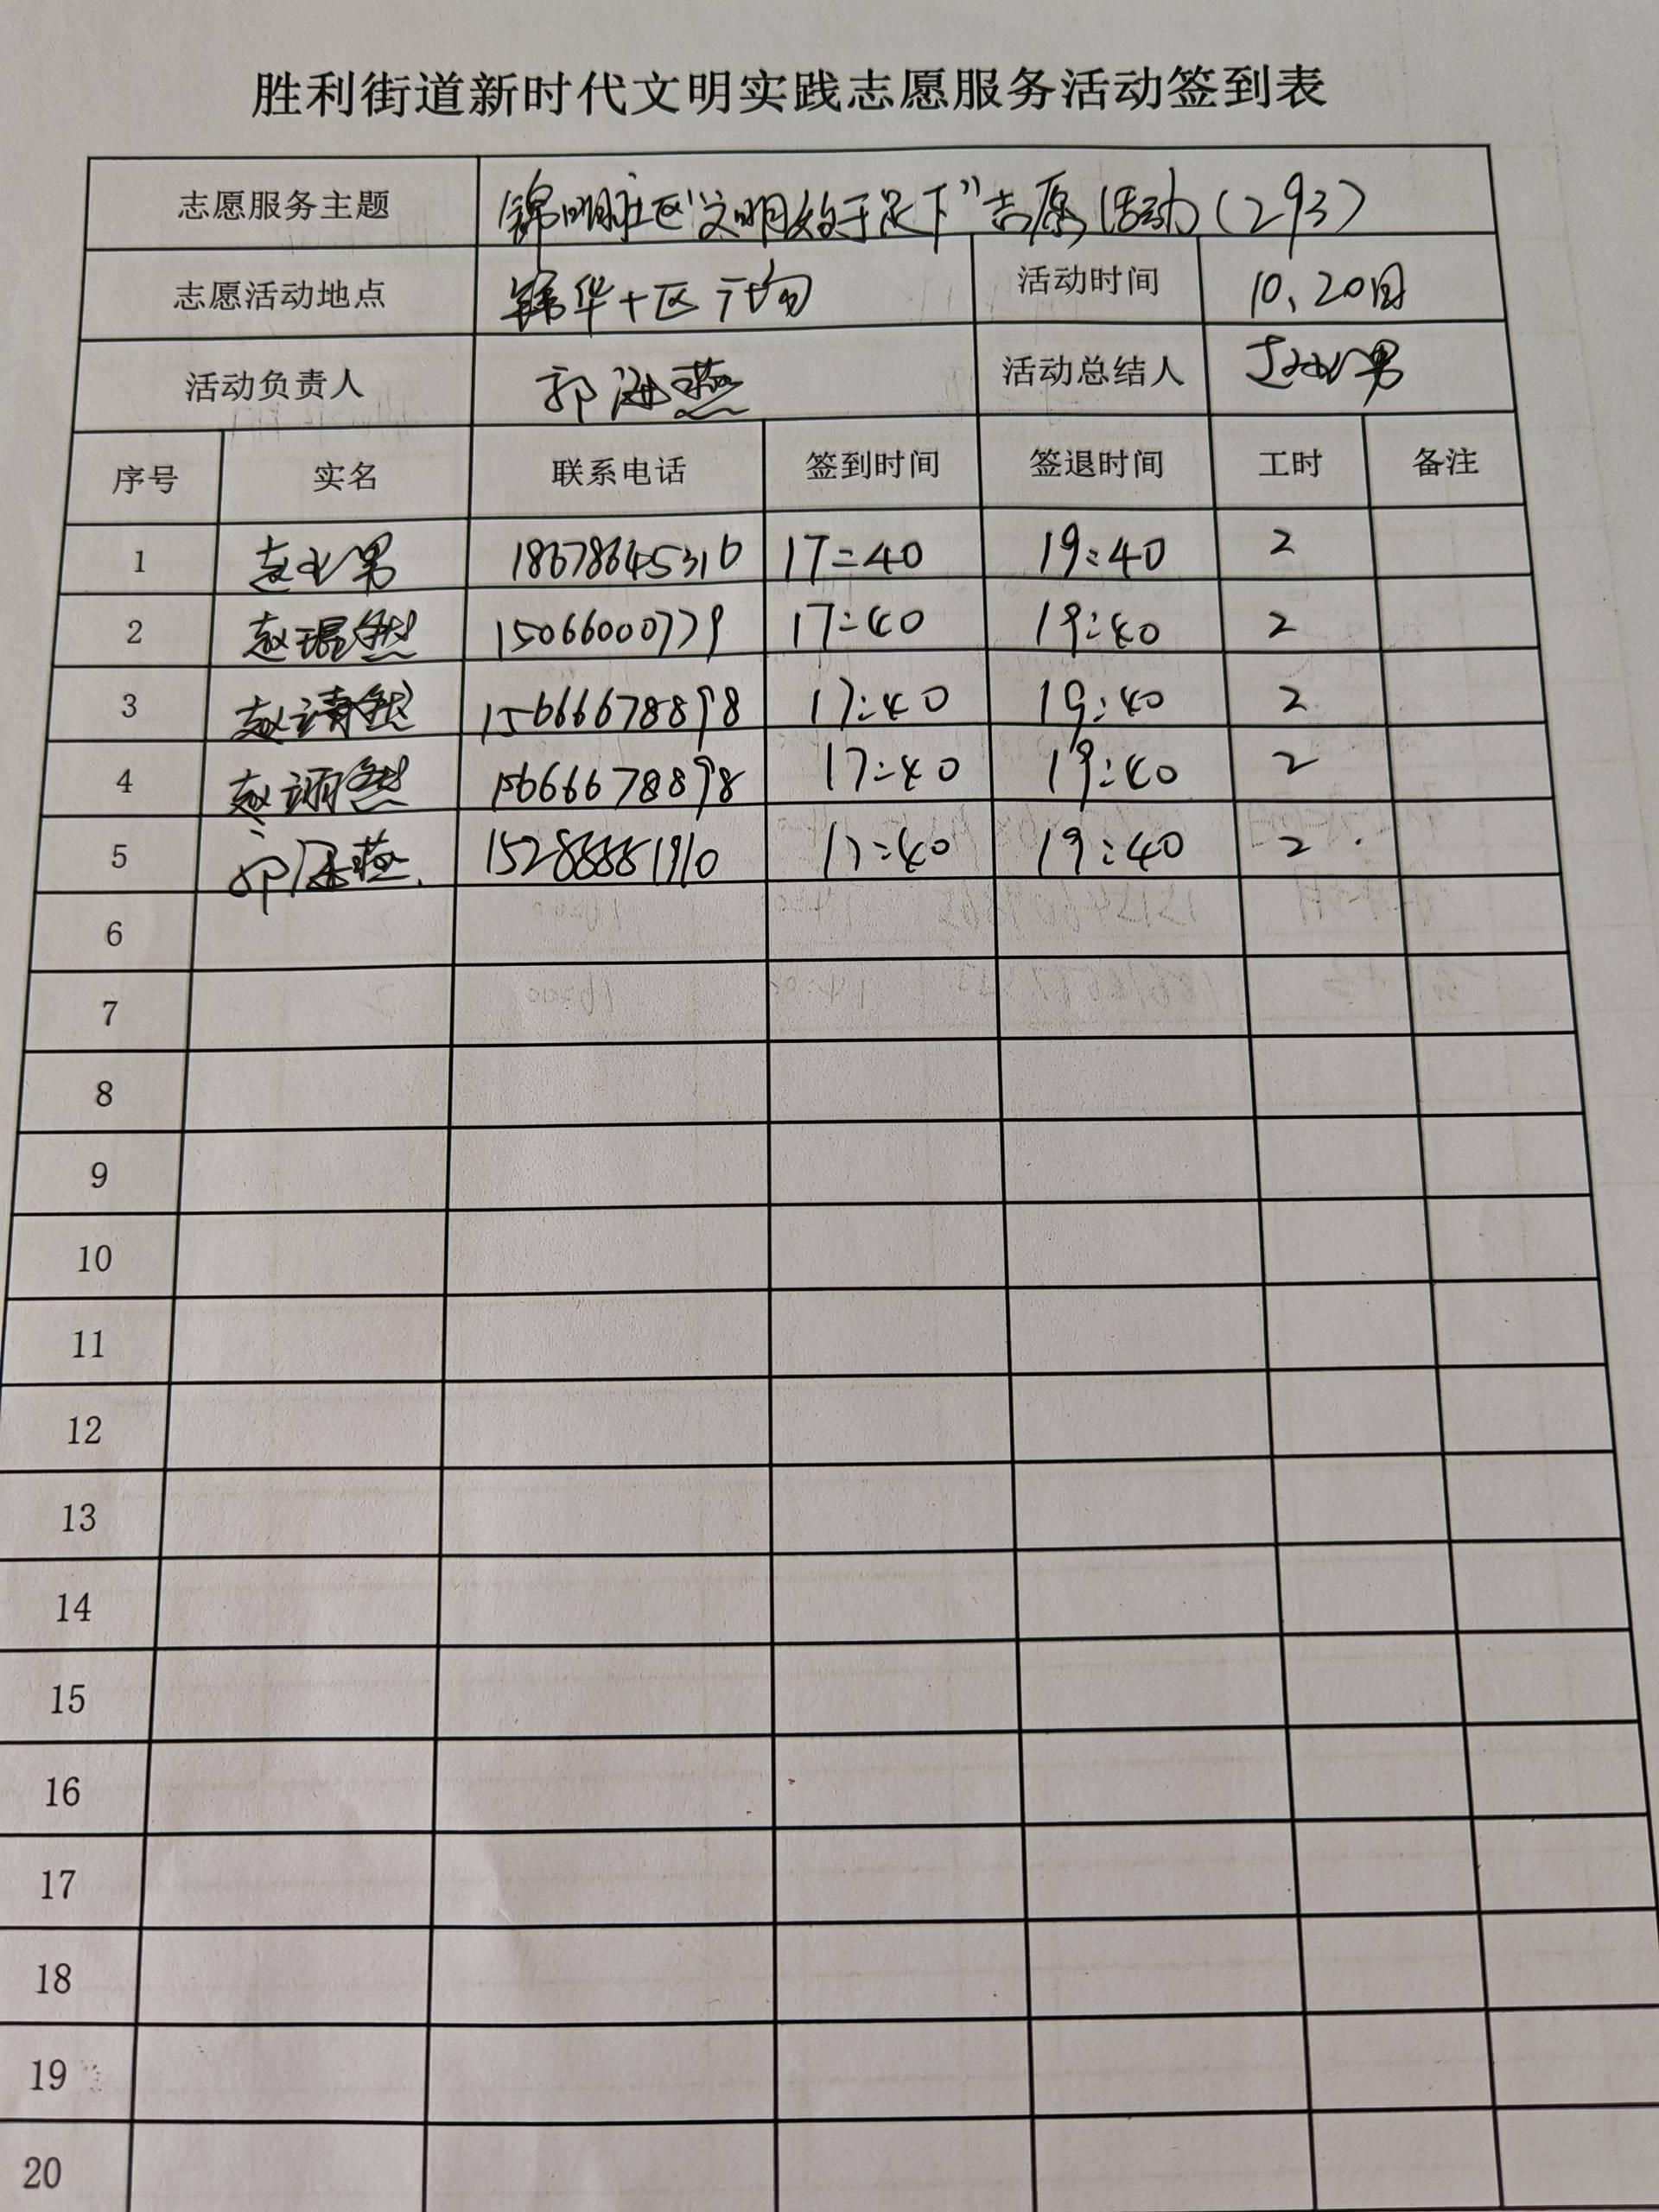 胜利街道新时代文明实践志愿服务活动签到表
志愿服务主题 锦明社区“文明始于足下”志愿活动(293)
志愿活动地点 锦华十区 活动时间 10.20日
活动负责人 郭海燕 活动总结人
序号 实名 联系电话 签到时间 签退时间 工时 备注
1 18678645316 17:40 19:40 2
2 赵琨然 15066000779 17:40 19:40 2
3 赵清然 15666678898 17:40 19:40 2
4 赵然 15666678898 17:40 19:40 2
5 郭海燕 15288881910 17:40 19:40 2
6
7
8
9
10
11
12
13
14
15
16
17
18
19
20